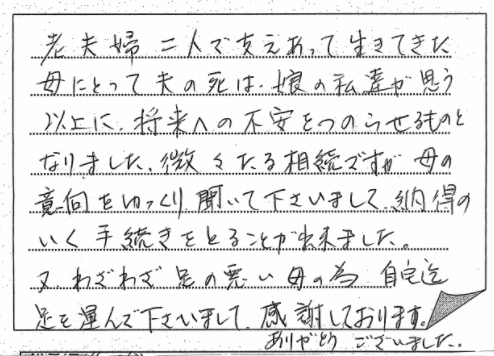 老夫婦二人で支えあって生きてきた
母にとって夫の死は、娘の私達が思う
以上に、将来への不安をつのらせるものと
なりました。微々たる相続ですが母の
意向をゆっくり聞いて下さいまして、納得の
いく手続きをとることが出来ました。
又わざわざ足の悪い母の為、自宅迄
足を運んで下さいまして、感謝しております。
ありがとうございました。